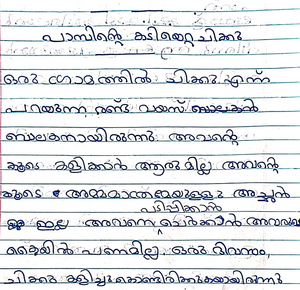 പാമ്പിന്റെ കടിയേറ്റ ചിക്കു
ഒരു ഗ്രാമത്തിൽ ചിക്കു എന്ന്
പറയുന്ന രണ്ടു വയസ് ബാലകൻ
ബാലകനായിരുന്നു അവന്റെ
കൂടെ കളിക്കാൻ ആരുമില്ല അവന്റെ
കൂടെ അമ്മമാത്രമേയുള്ളു അച്ഛൻ
പടിപ്പിക്കാൻ
ഇല്ല അവനെ ചെർക്കാൻ അവരുടെ
കൈയിൽ പണമില്ല ഒരു ദിവസം,
ചിക്കു കളിച്ചുകൊണ്ടിരിക്കുകയായിരുന്നു